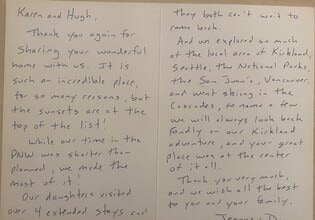 Karen and Hugh,
Thank you again for
sharing your wonderful
home with us. It is
such an incredible place,
for so many reasons, but
the sunsets are at the
top of the list!
While our time in the
PNW was shorter than
planned, we made the
most of it!
Our daughters visited
over 4 extended stays and
they both can't wait to
come back.
And we explored so much
of the local area of Kirkland,
Seattle, the National Parks,
the San Juan's, Vancouver,
and went skiing in the
Cascades, to name a few.
We will always look back
fondly on our Kirkland
adventure, and your great
place was at the center
of it all.
Thank you very much,
and we wish all the best
to you and your family,